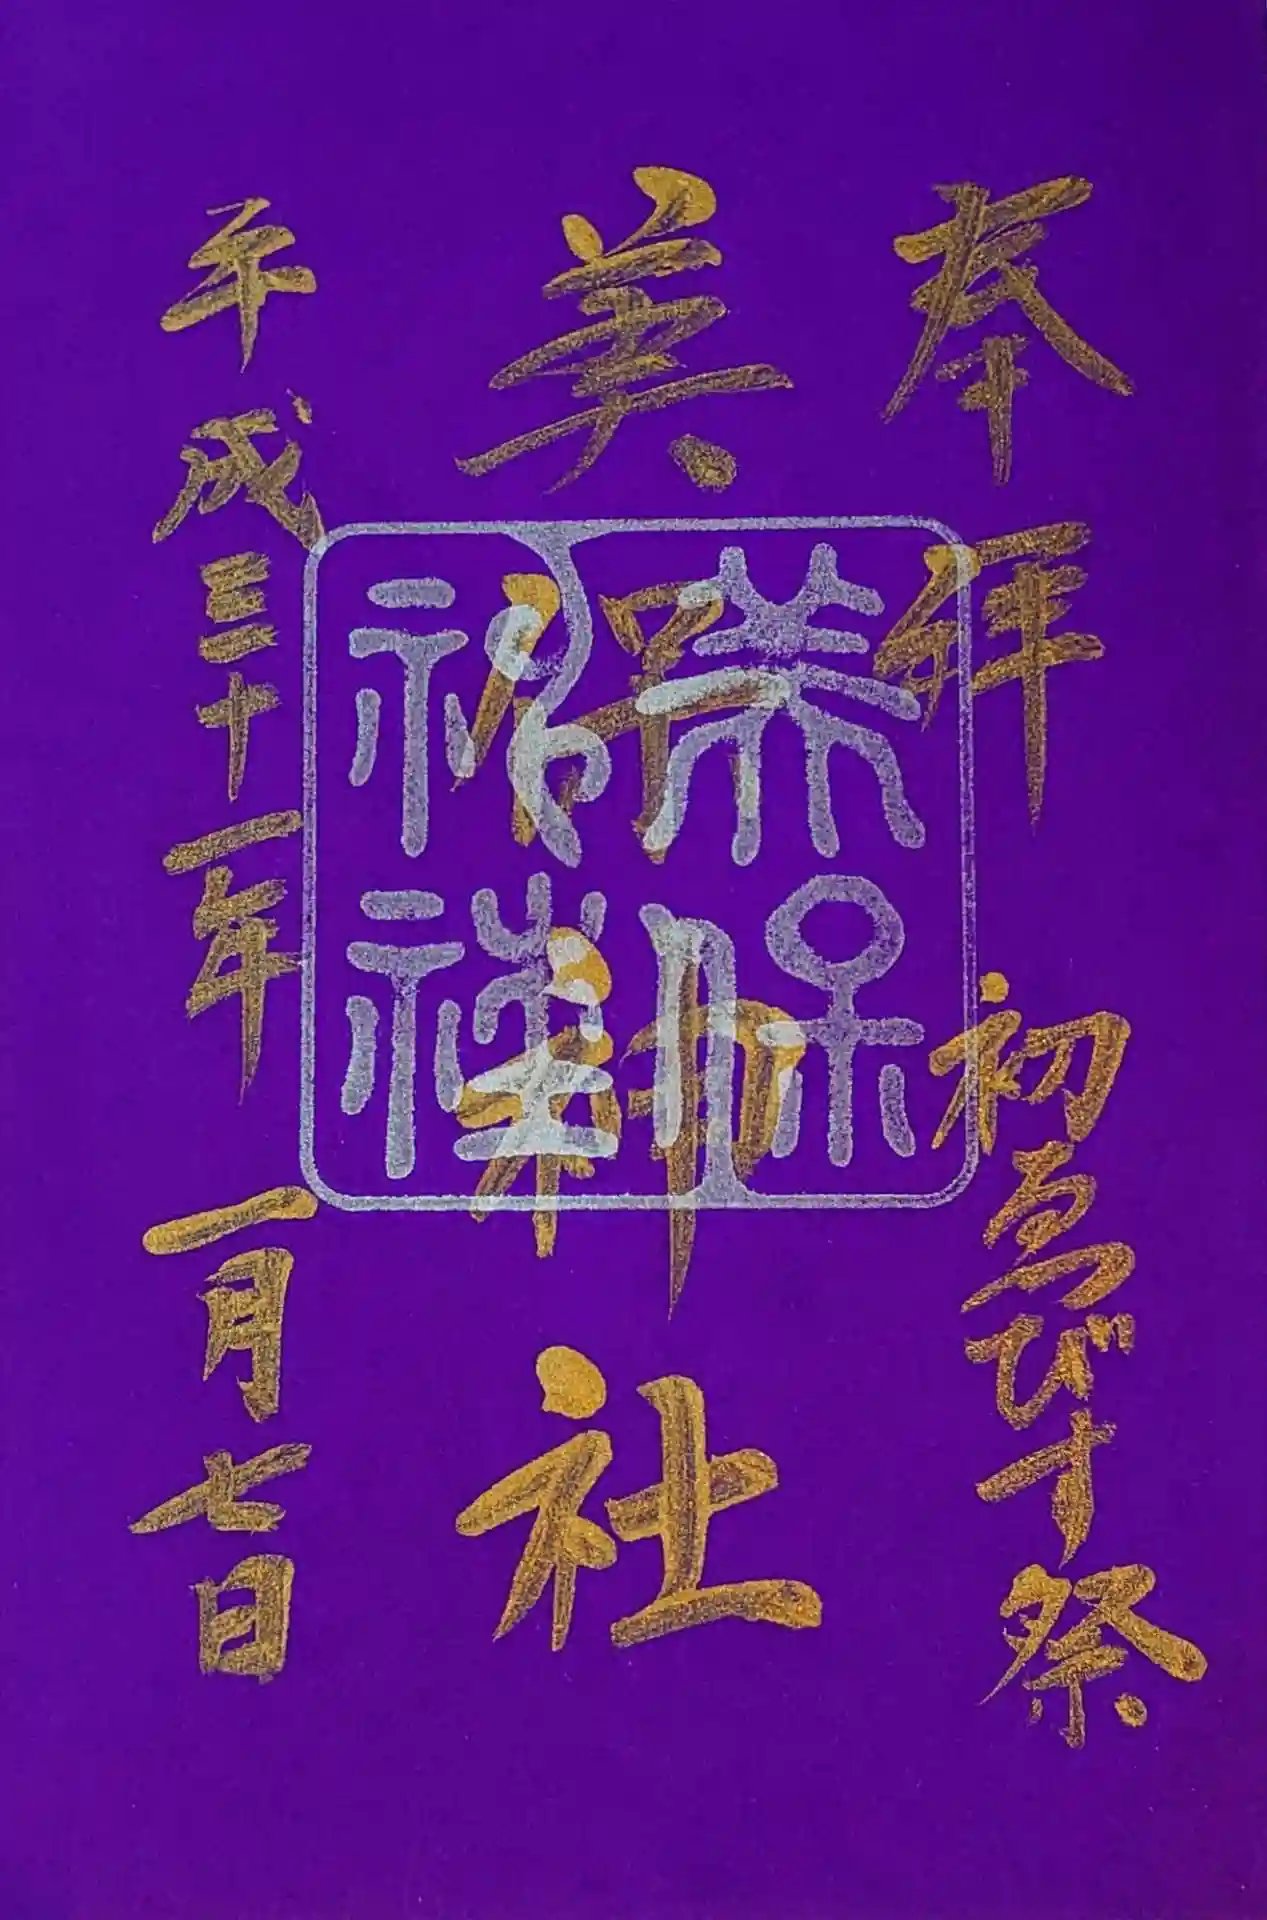 奉拝　初ゑびす祭
美保神社
美保
神社
平成三十一年一月七日